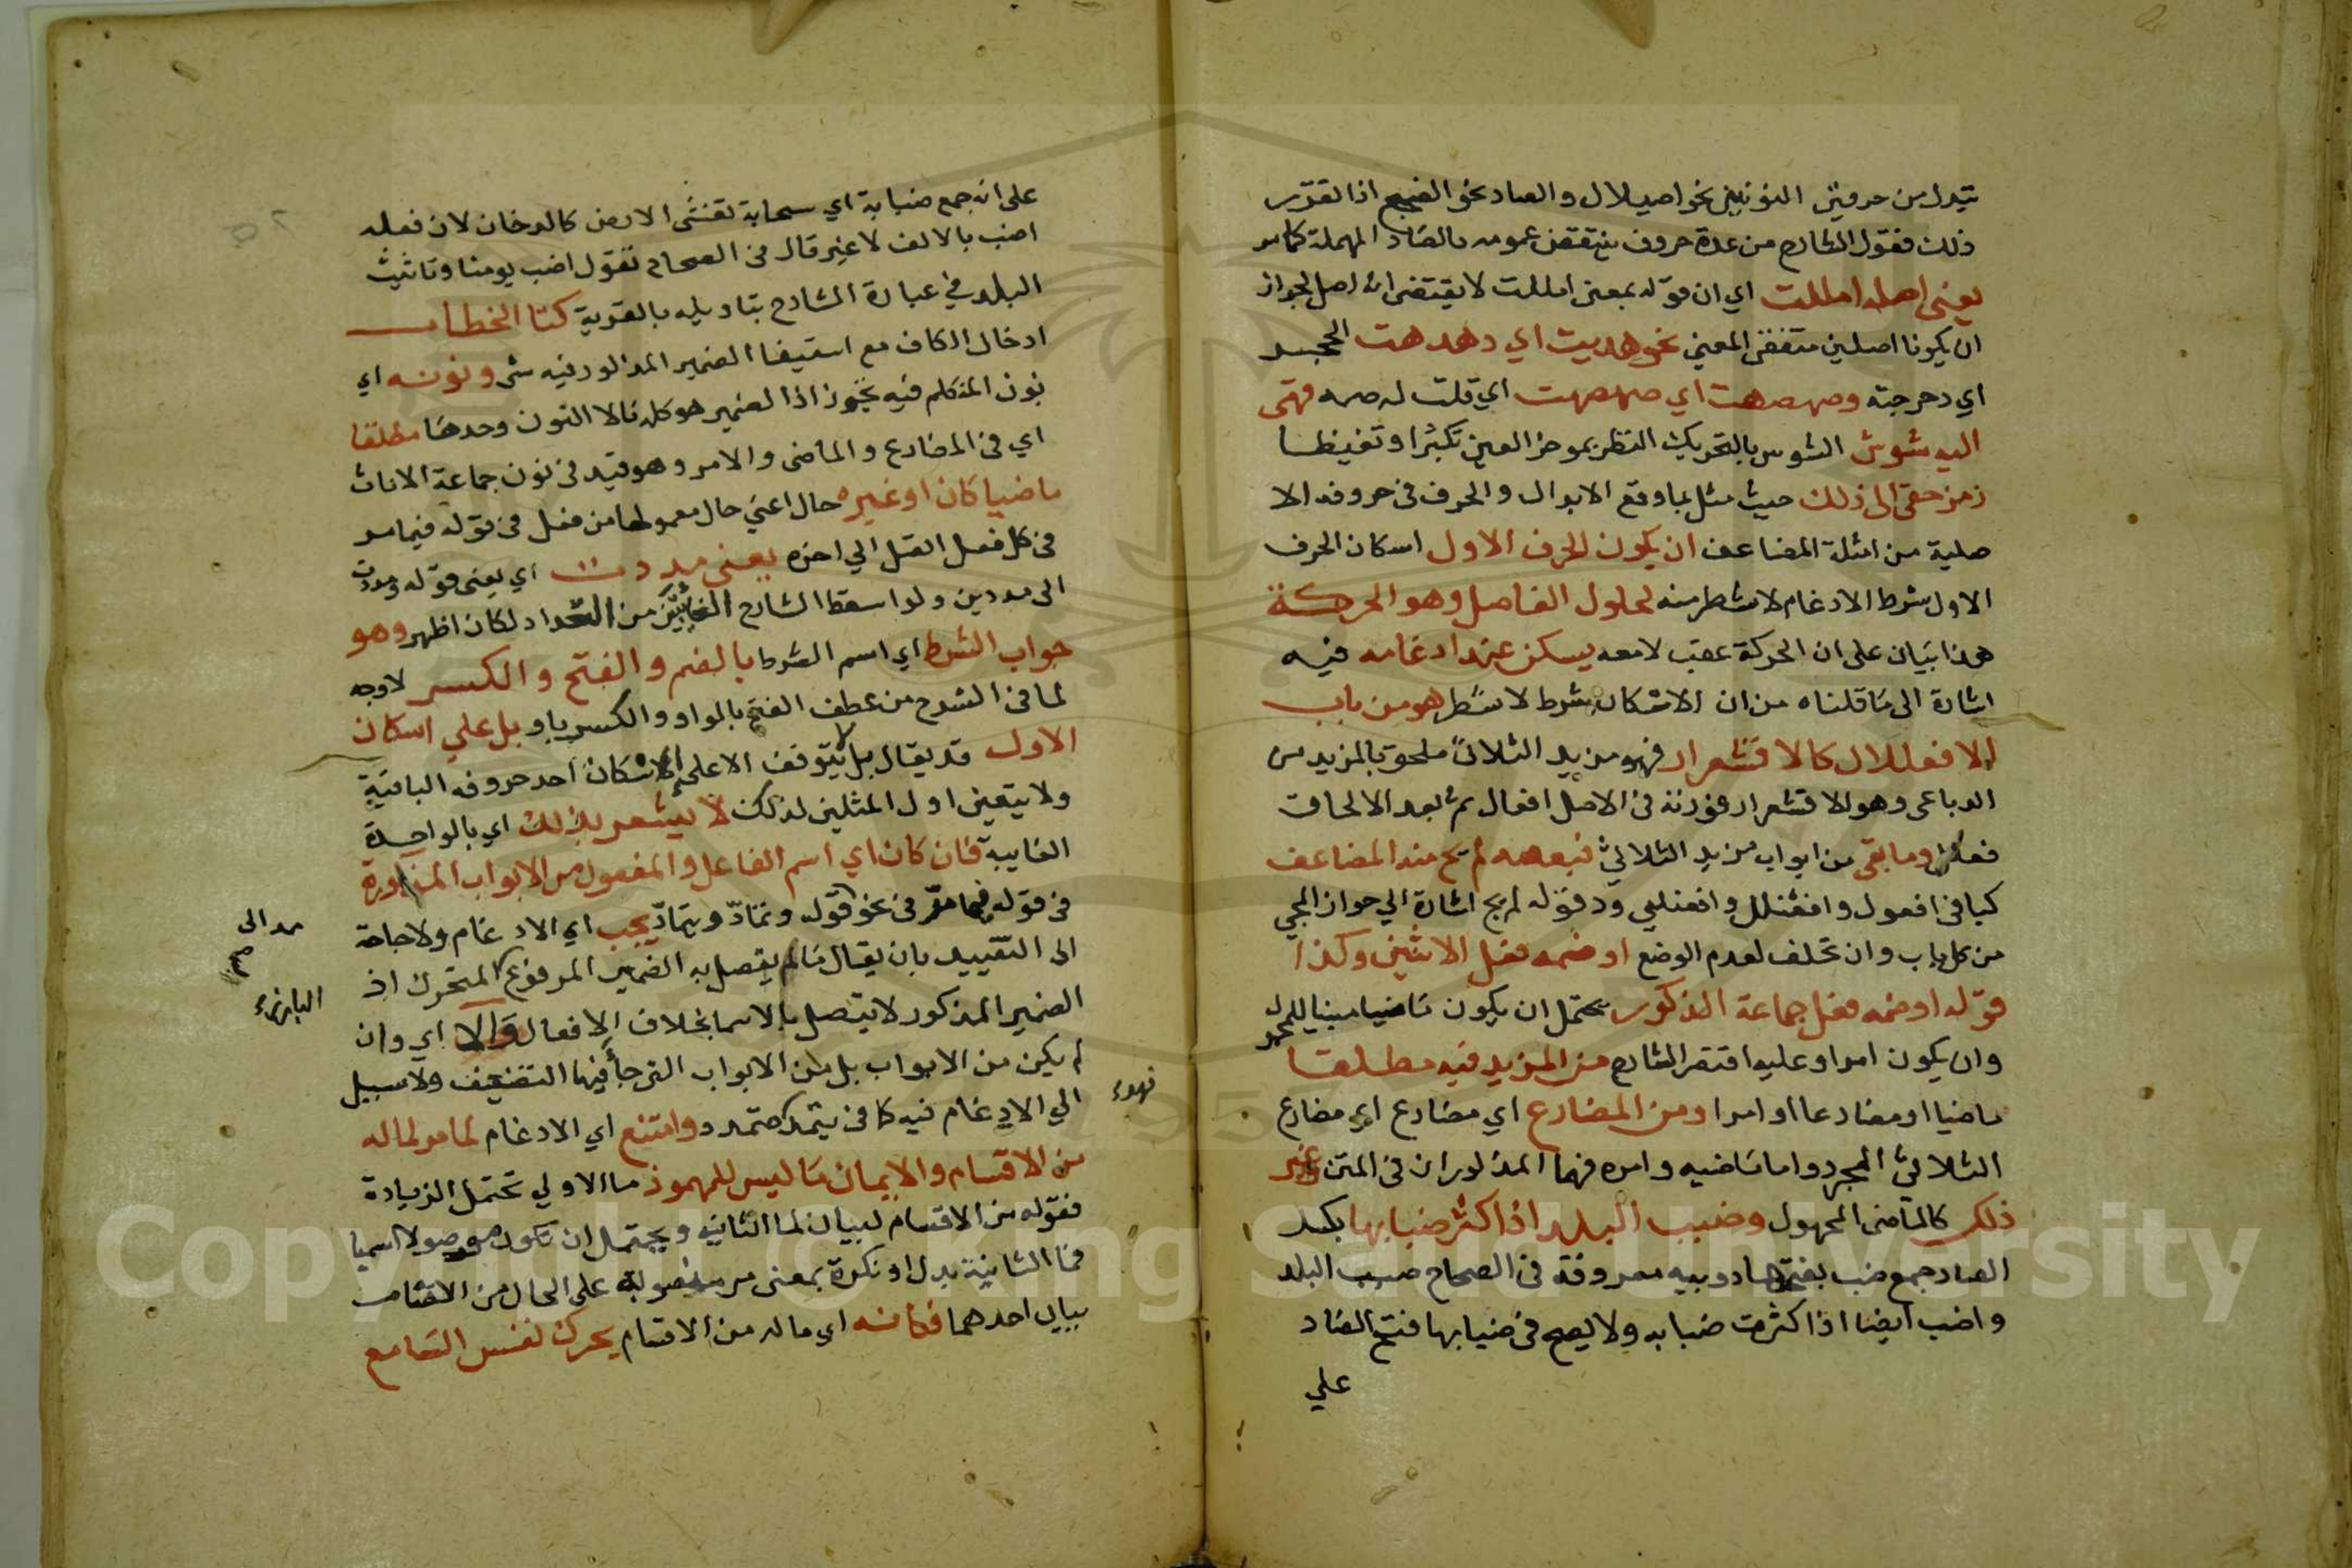 يتبدل من حروفين النونين نحو اصيلال والصاد نحو الضجع اذا تقرر
ذلك فقول الشارح من عدة حروف ينتقض عمومه بالصاد المهملة كما مر
يعنى اصله امللت اي ان قوله بمعنى امللت لا يقتضى انه اصل لجواز
ان يكونا اصلين متفقى المعنى نحو هديت اي دهدهت الحجر
اي دحرجته وصهصهت اي صهصهت اي قلت له صه فهى
اليه شوش الشوس بالتحريك النظر بموخر العين تكبرا وتغيظا
زمز حقى الى ذلك حيث مثل بما وقع الابدال والحرف فى حروفه الا
صلية من امثلة المضاعف ان يكون الحرف الاول اسكان الحرف
الاول شرط الادغام لا شطر منه لحلول الفاصل وهو الحركة
هذا بيان على ان الحركة عقب لا معه يسكن عند ادغامه فيه
اشارة الى ما قلناه من ان الاسكان شرط لا شطر هو من باب
الافعللال كالاقشعرار فهو مزيد الثلاثى ملحق بالمزيد من
الرباعى وهو الاقشعرار فوزنه فى الاصل افعال ثم بعد الالحاق
فعلل وما بقى من ابواب مزيد الثلاثى فبعضه لم يج منه المضاعف
كما فى افعول وافعنلل وافعنلى ود قوله لم يج اشارة الي جواز المجي
من كل باب وان تخلف لعدم الوضع او ضمه فعل الاثنين وكذا
قوله او ضمه فعل جماعة الذكور يحتمل ان يكون ماضيا مبنيا للمجهول
وان يكون امرا وعليه اقتصر الشارح من المزيد فيه مطلقا
ماضيا او مضارعا او امرا ومن المضارع اي مضارع اي مضارع
الثلاثى المجرد واما ماضيه وامره فهما المذكوران فى المتن غير
ذلك كالماضى المجهول وضبب البلد اذا كثر ضبابها بكسر
الضاد جمع ضب بفتحها دويبه معروفة فى الصحاح ضبب البلد
واضب ايضا اذا كثرت ضبابه ولا يصح فى ضبابها فتح الضاد
علي
على انه جمع ضبابة اي سحابة تغشى الارض كالدخان لان فعله
اضب بالالف لا غير قال فى الصحاح تقول اضب يومنا وتانيث
البلد في عبارة الشارح بتاويله بالقرية كتا الخطاب
ادخال الكاف مع استيفا الضمير المذكور فيه شى ونونه اي
نون المتكلم فيه تجوز اذا الضمير هو كله نا لا النون وحدها مطلقا
اي فى المضارع والماضى والامر وهو قيد فى نون جماعة الاناث
ماضيا كان او غيره حال اعني حال معمولها من فعل فى قوله فيما مر
فى كل فعل اتصل الي اخره يعنى مددت اي يعنى قوله مددت
الى مددين ولو اسقط الشارح الغايبين من التعداد لكان اظهر وهو
جواب الشرط اي اسم الشرط بالضم والفتح والكسر لا وجه
لما فى الشرح من عطف الفتح بالواو والكسر باو بل على اسكان
الاول قد يقال بل لا يتوقف الا على اسكان احد حروفه الباقية
ولا يتعين اول المثلين لذلك لا يشعر بذلك اي بالواحدة
الغايبة فان كان اي اسم الفاعل والمفعول من الابواب المذكورة
فى قوله فيما مر فى نحو قوله ونمادّ ويتمادّ يجب اي الادغام ولا حاجة
الى التقييد بان يقال ما لم يتصل به الضمير المرفوع المتحرك اذ
الضمير المذكور لا يتصل بالاسما بخلاف الافعال والا اي وان
لم يكن من الابواب بل من الابواب التى جا فيها التضعيف ولا سبيل
الي الادغام فيه كما فى يتمدد متمدد وامتنع اي الادغام لما مر لما له
من الاقسام والايمان ما ليس للمهموز ما الاولي تحتمل الزيادة
فقوله من الاقسام لبيان لما الثانيه ويحتمل ان تكون موصولا اسميا
فما الثانية بدل او نكرة بمعنى منصوبة على الحال من الاقسام
ببيان احدهما فكانه اي ما له من الاقسام يحرك نفس السامع
مد الى
صح
البارزه